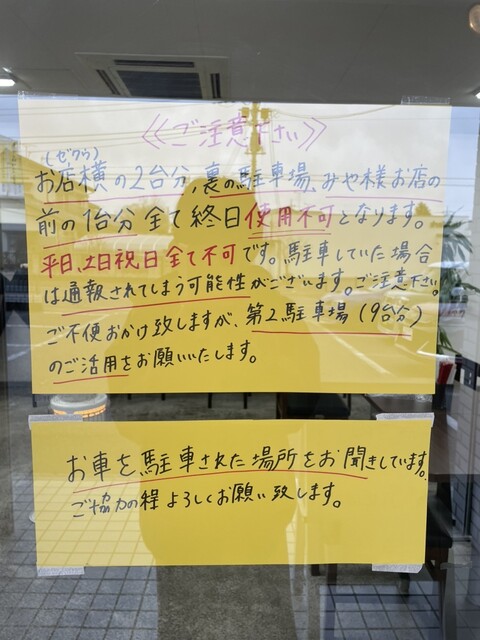 ≪ご注意下さい≫
(ゼクウ)
お店横の2台分、裏の駐車場、みや様お店の
前の1台分全て終日使用不可となります。
平日、土日祝日全て不可です。駐車していた場合
は通報されてしまう可能性がございます。ご注意下さい。
ご不便おかけ致しますが、第2駐車場(9台分)
のご活用をお願いいたします。
お車を駐車された場所をお聞きしています。
ご協力の程よろしくお願い致します。